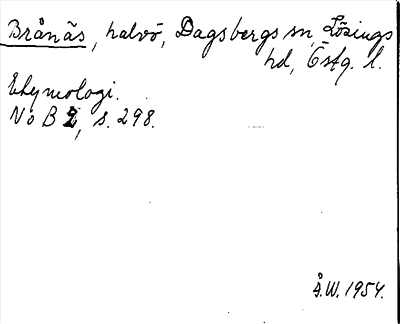 Brånäs, halvö, Dagsbergs sn, Lösings
hd, Östg. l.
Etymologi.
NoB 2, s. 298.
Å.W. 1954.